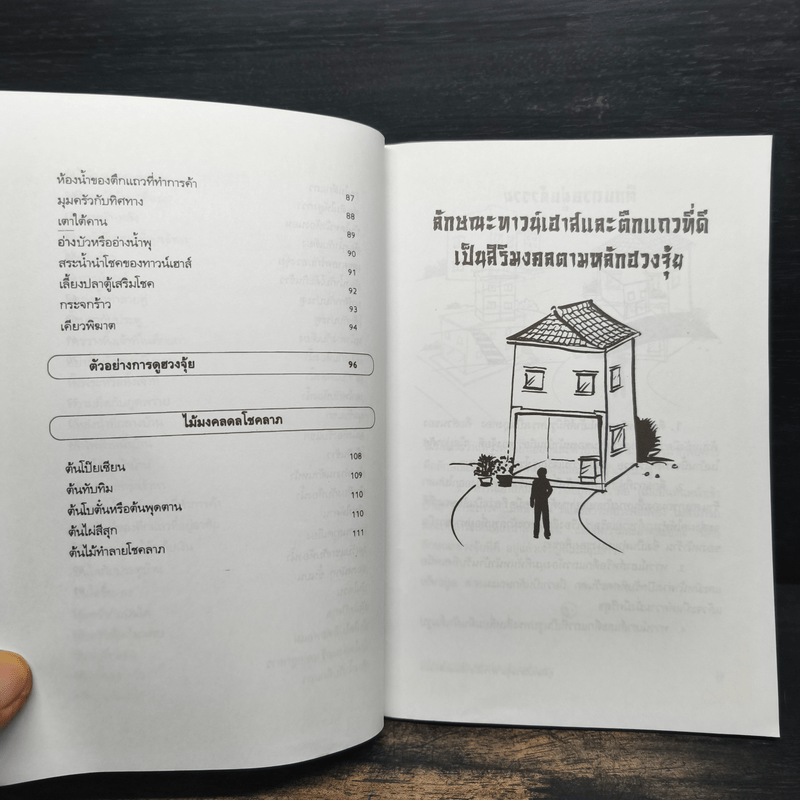 ห้องน้ำของตึกแถวที่ทำการค้า 87
มุมครัวกับทิศทาง 88
เตาใต้คาน 89
อ่างบัวหรืออ่างน้ำพุ 90
สระน้ำนำโชคของทาวน์เฮาส์ 91
เลี้ยงปลาตู้เสริมโชค 92
กระจกร้าว 93
เคียวพิฆาต 94
ตัวอย่างการดูฮวงจุ้ย 96
ไม้มงคลดลโชคลาภ
ต้นโป๊ยเซียน 108
ต้นทับทิม 109
ต้นโบตั๋นหรือต้นพุดตาน 110
ต้นไผ่สีสุก 110
ต้นไม้ทำลายโชคลาภ 111
ลักษณะทาวน์เฮาส์และตึกแถวที่ดี
เป็นสิริมงคลตามหลักฮวงจุ้ย